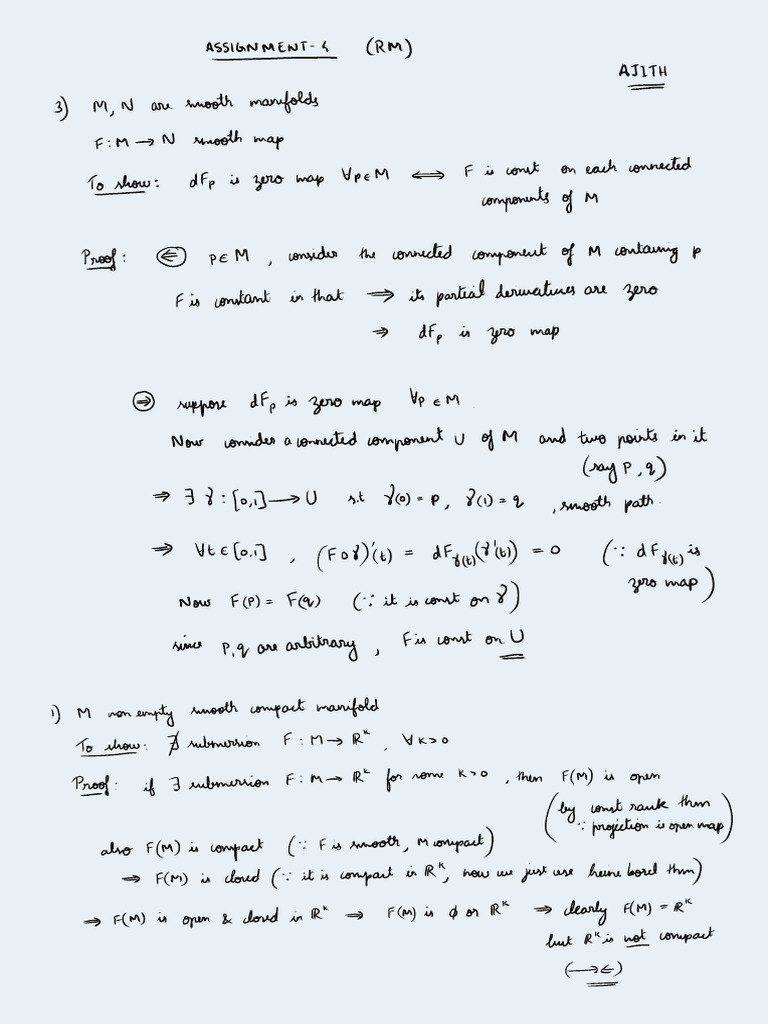 ASSIGNMENT-4 (RM)
AJITH
3) M, N are smooth manifolds
F : M → N smooth map
To show: dFₚ is zero map ∀p∈M ⟺ F is const on each connected
components of M
Proof: (⇐) p∈M, consider the connected component of M containing p
F is constant in that ⟹ its partial derivatives are zero
⇒ dFₚ is zero map
(⇒) suppose dFₚ is zero map ∀p∈M.
Now consider a connected component U of M and two points in it
(say p, q)
⇒ ∃ γ : [0,1] → U s.t γ(0) = p, γ(1) = q, smooth path.
⇒ ∀t∈[0,1], (F∘γ)'(t) = dF_γ(t)(γ'(t)) = 0 (∵ dF_γ(t) is
zero map)
Now F(p) = F(q) (∵ it is const on γ)
since p,q are arbitrary, F is const on U
1) M non empty smooth compact manifold
To show: ∄ submersion F : M → ℝᵏ, ∀k>0
Proof: if ∃ submersion F : M → ℝᵏ for some k>0, then F(M) is open
(by const rank thm
∵ projection is open map)
also F(M) is compact (∵ F is smooth, M compact)
⇒ F(M) is closed (∵ it is compact in ℝᵏ, now we just use heine borel thm)
⇒ F(M) is open & closed in ℝᵏ ⇒ F(M) is ϕ or ℝᵏ ⇒ clearly F(M) = ℝᵏ
but ℝᵏ is not compact
(→←)